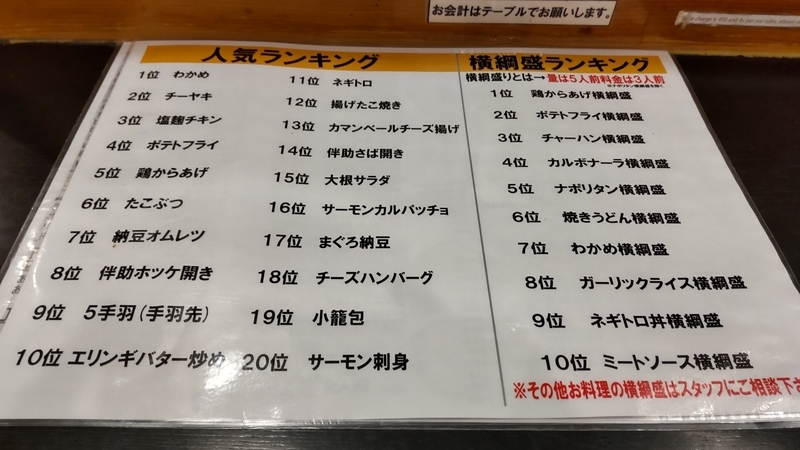 お会計はテーブルでお願いします。
人気ランキング
1位 わかめ
2位 チーヤキ
3位 塩麹チキン
4位 ポテトフライ
5位 鶏からあげ
6位 たこぶつ
7位 納豆オムレツ
8位 伴助ホッケ開き
9位 5手羽(手羽先)
10位 エリンギバター炒め
11位 ネギトロ
12位 揚げたこ焼き
13位 カマンベールチーズ揚げ
14位 伴助さば開き
15位 大根サラダ
16位 サーモンカルパッチョ
17位 まぐろ納豆
18位 チーズハンバーグ
19位 小籠包
20位 サーモン刺身
横綱盛ランキング
横綱盛りとは→量は5人前料金は3人前
※ナポリタン横綱盛を除く
1位 鶏からあげ横綱盛
2位 ポテトフライ横綱盛
3位 チャーハン横綱盛
4位 カルボナーラ横綱盛
5位 ナポリタン横綱盛
6位 焼きうどん横綱盛
7位 わかめ横綱盛
8位 ガーリックライス横綱盛
9位 ネギトロ丼横綱盛
10位 ミートソース横綱盛
※その他お料理の横綱盛はスタッフにご相談下さ